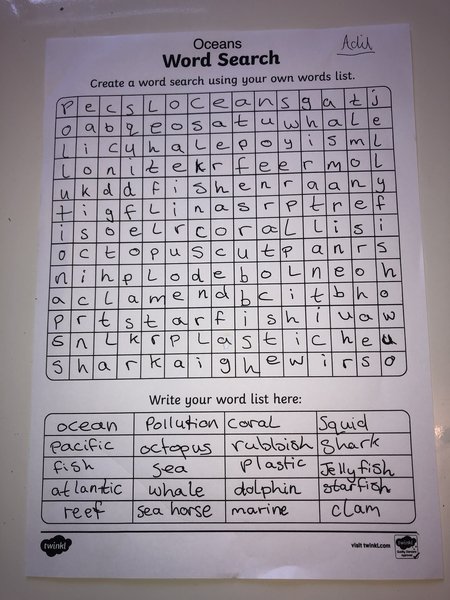 Oceans
Adil
Word Search
Create a word search using your own words list.
p e c s l o c e a n s g a t j
o a b q e o s a t u w h a l e
l i c y h a l e p o y i s m l
l o n i t e k r f e e r m o l
u k d d f i s h e n r a a n y
t i g f l i n a s r p t r e f
i s o e l r c o r a l l i s i
o c t o p u s c u t p a n r s
n i h p l o d e b o l n e o h
a c l a m e n d b c i t b h o
p r t s t a r f i s h i u a w
s n l k r p l a s t i c h e u
s h a r k a i g h e w i r s o
Write your word list here:
ocean Pollution coral Squid
pacific octopus rubbish shark
fish sea plastic Jellyfish
atlantic whale dolphin starfish
reef sea horse marine clam
twinkl visit twinkl.com twinkl